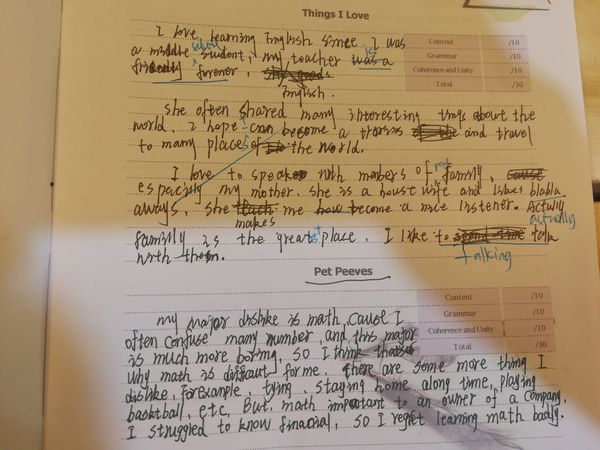 Things I Love
I love learning English since I was
a middle school student, my teacher was is a
friendly furener,
English.
Content /10
Grammar /10
Coherence and Unity /10
Total /30
She often shared many interesting tings about the
world. I hope I can become a and travel
to many places of the world.
I love to speak with mebers of my familly,
espacilly my mother. she is a house wife and likes blabla
always. She makes me how become a nice listener. Actully actually
familly is the greatest place. I like to talk talking
with them.
Pet Peeves
Content /10
Grammar /10
Coherence and Unity /10
Total /30
my major dislike is math, Cause I
often confuse many number, and this major
is much more boring, so I think that's
why math is difficult for me. there are some more thing I
dislike, for example, tying, staying home along time, playing
basketball, etc. But math important to an owner of a company.
I struggled to know finacial, so I regret learning math badly.